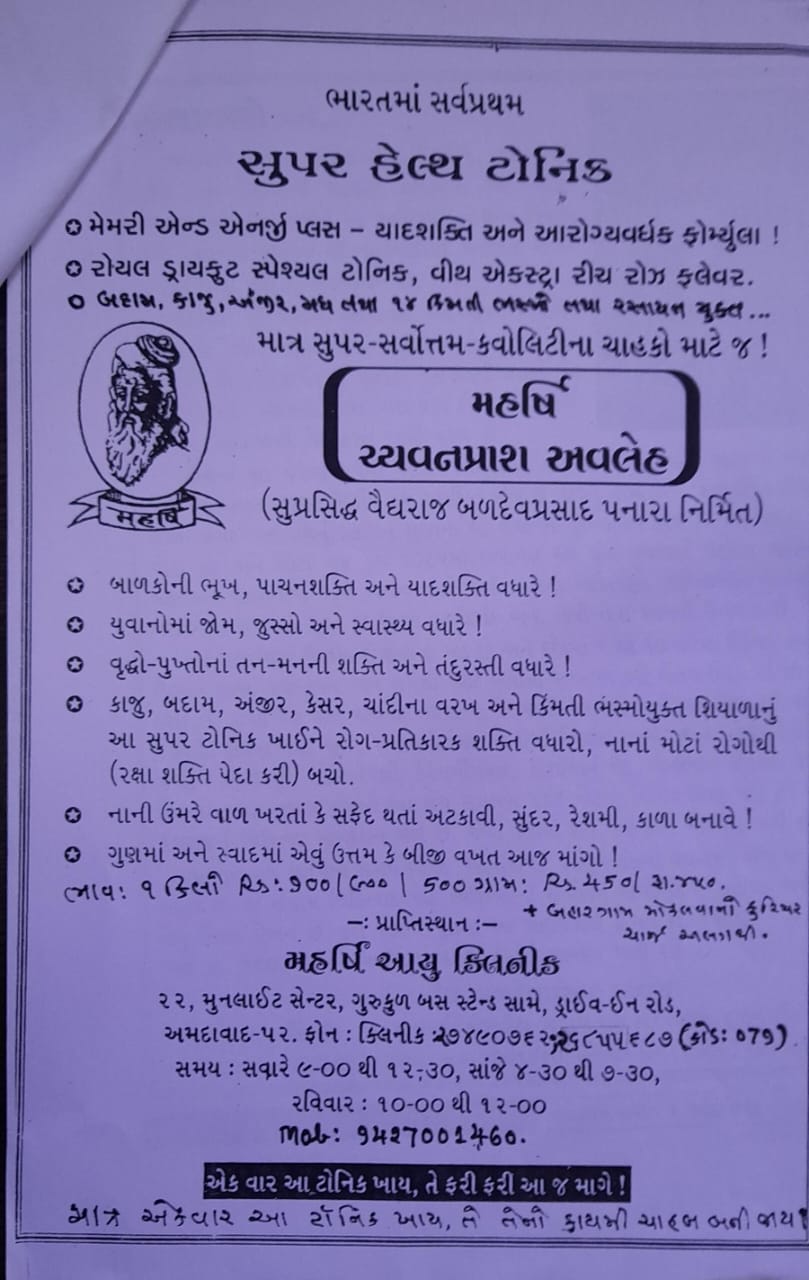 ભારતમાં સર્વપ્રથમ
સુપર હેલ્થ ટોનિક
✪ મેમરી એન્ડ એનર્જી પ્લસ – યાદશક્તિ અને આરોગ્યવર્ધક ફોર્મ્યુલા !
✪ રોયલ ડ્રાયફુટ સ્પેશ્યલ ટોનિક, વીથ એકસ્ટ્રા રીચ રોઝ ફલેવર.
બદામ, કાજુ, અંજીર, મધ તથા ૧૪ કિંમતી ભસ્મો તથા રસાયન યુક્ત...
માત્ર સુપર-સર્વોત્તમ-ક્વોલિટીના ચાહકો માટે જ !
મહર્ષિ
ચ્યવનપ્રાશ અવલેહ
મહર્ષિ
(સુપ્રસિદ્ધ વૈદ્યરાજ બળદેવપ્રસાદ પનારા નિર્મિત)
✪ બાળકોની ભૂખ, પાચનશક્તિ અને યાદશક્તિ વધારે !
✪ યુવાનોમાં જોમ, જુસ્સો અને સ્વાસ્થ્ય વધારે !
✪ વૃદ્ધો-પુખ્તોનાં તન-મનની શક્તિ અને તંદુરસ્તી વધારે !
✪ કાજુ, બદામ, અંજીર, કેસર, ચાંદીના વરખ અને કિંમતી ભસ્મોયુક્ત શિયાળાનું
આ સુપર ટોનિક ખાઈને રોગ-પ્રતિકારક શક્તિ વધારો, નાનાં મોટાં રોગોથી
(રક્ષા શક્તિ પેદા કરી) બચો.
✪ નાની ઉંમરે વાળ ખરતાં કે સફેદ થતાં અટકાવી, સુંદર, રેશમી, કાળા બનાવે !
✪ ગુણમાં અને સ્વાદમાં એવું ઉત્તમ કે બીજી વખત આજ માંગો !
ભાવ: ૧ કિલો રૂ.: 900/ | 500 ગ્રામ: રૂ. 450/ રૂા.૪૫૦.
+ બહારગામ મોકલવાનો કુરિયર
ચાર્જ અલગથી.
–: પ્રાપ્તિસ્થાન :–
મહર્ષિ આયુ ક્લિનીક
૨૨, મુનલાઈટ સેન્ટર, ગુરુકુળ બસ સ્ટેન્ડ સામે, ડ્રાઈવ-ઈન રોડ,
અમદાવાદ-૫૨. ફોન : ક્લિનીક (કોડ: 079)
સમય : સવારે ૯-૦૦ થી ૧૨-૩૦, સાંજે ૪-૩૦ થી ૭-૩૦,
રવિવાર : ૧૦-૦૦ થી ૧૨-૦૦
Mob: 9427001460.
એક વાર આ ટોનિક ખાય, તે ફરી ફરી આ જ માગે !
માત્ર એકવાર આ ટૉનિક ખાય, તે તેનો કાયમી ચાહક બની જાય!